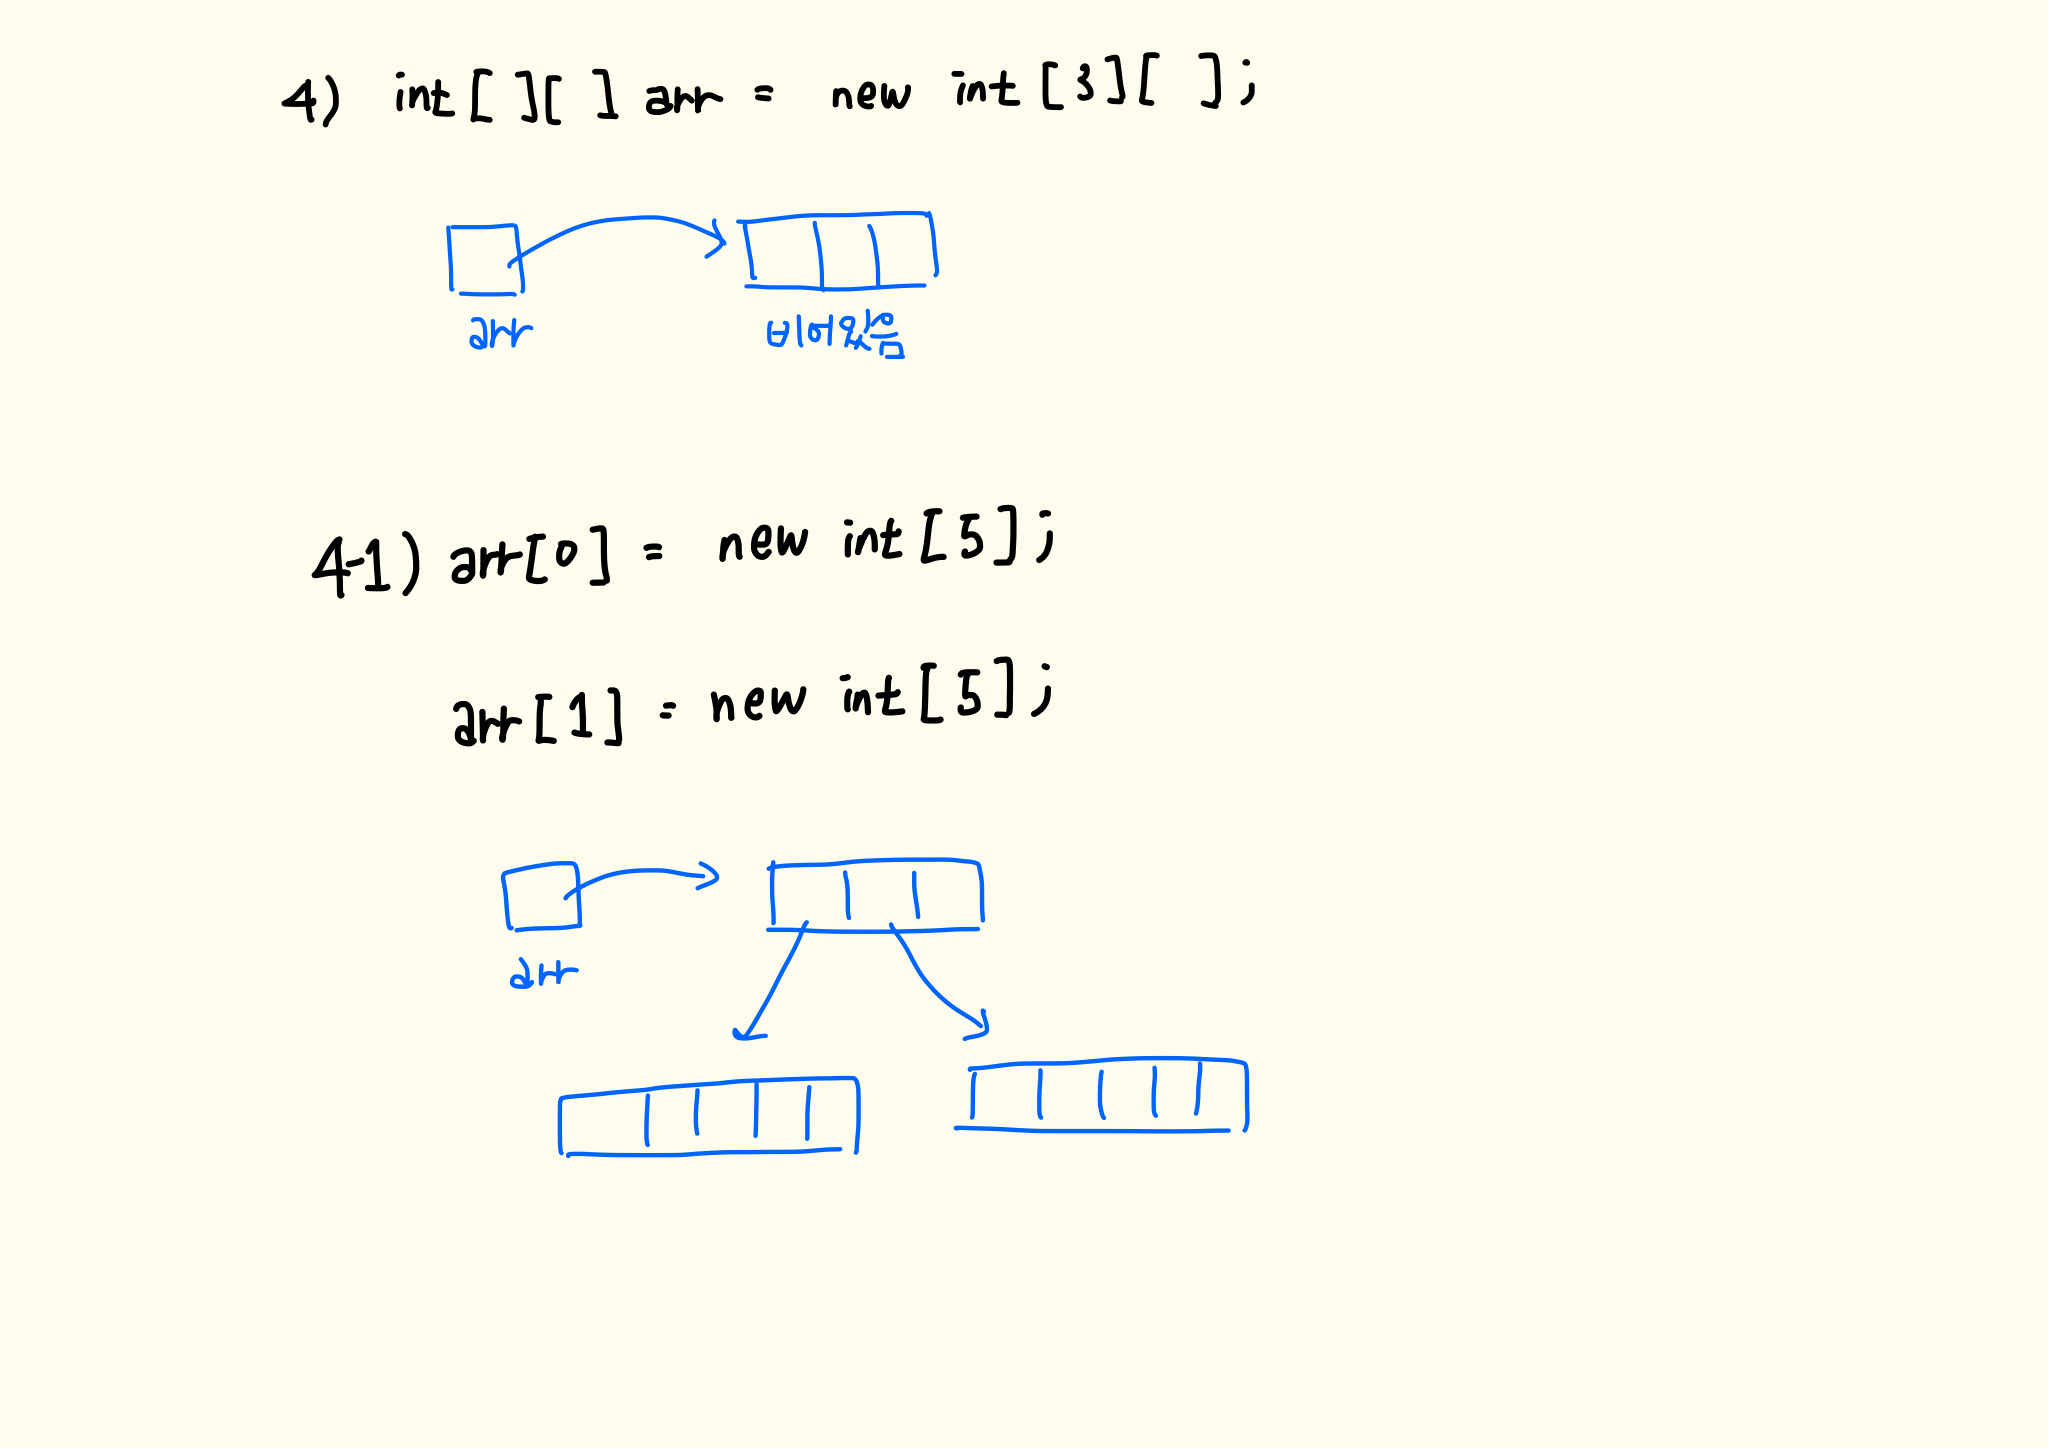 4) int[ ][ ] arr = new int[3][ ];
arr
비어있음
4-1) arr[0] = new int[5];
arr[1] = new int[5];
arr